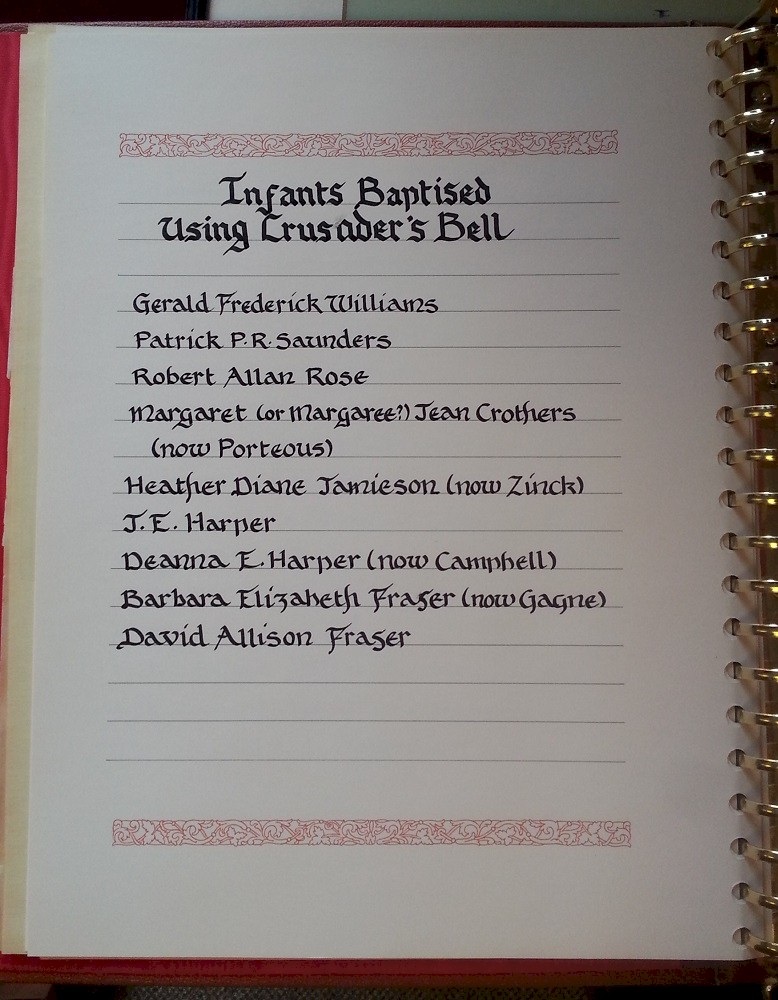 Infants Baptised
Using Crusader's Bell
Gerald Frederick Williams
Patrick P.R. Saunders
Robert Allan Rose
Margaret (or Margaree?) Jean Crothers
(now Porteous)
Heather Diane Jamieson (now Zinck)
J.E. Harper
Deanna E. Harper (now Campbell)
Barbara Elizabeth Fraser (now Gagne)
David Allison Fraser